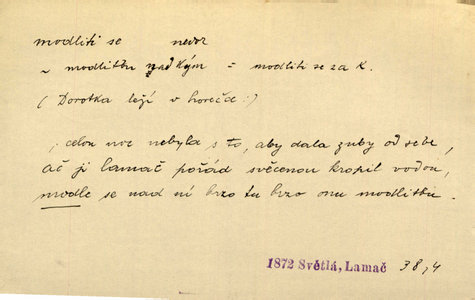 modliti se nedok
~ modlitbu nad kým = modliti se za k.
(Dorotka leží v horečce:)
, celou noc nebyla s to, aby dala zuby od sebe,
ač ji lamač pořád svěcenou kropil vodou,
modle se nad ní brzo tu brzo onu modlitbu.
1872 Světlá, Lamač 38,4